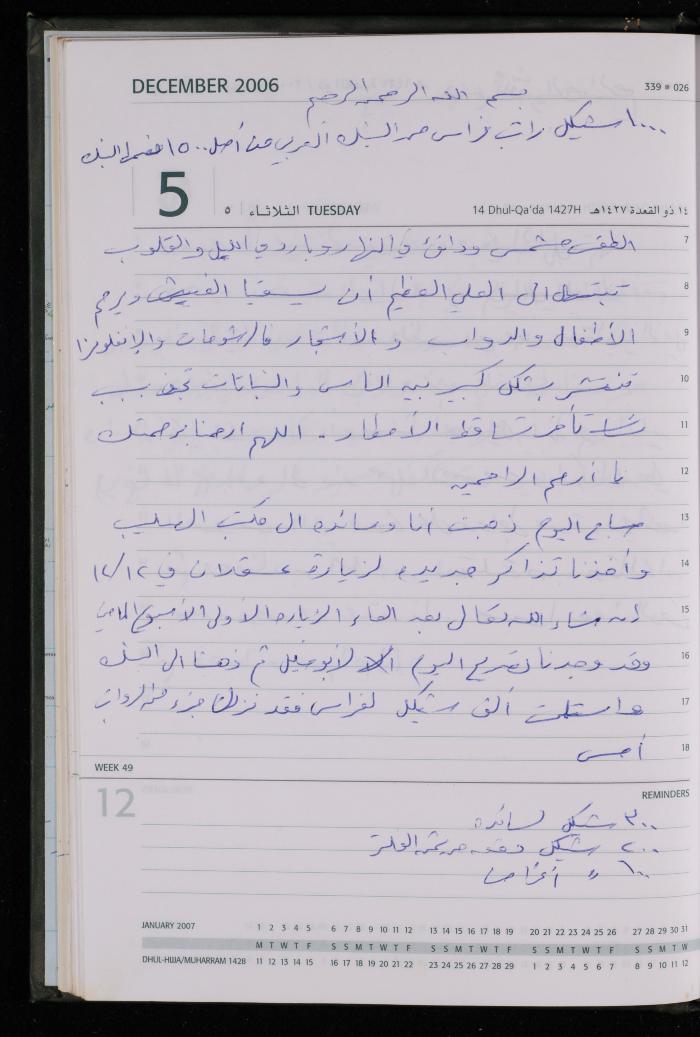 DECEMBER 2006
339 • 026
بسم الله الرحمن الرحيم
١٠٠٠ شيكل راتب فراس من البنك العربي من أصل ١٥٠٠ البنك
5
٥ الثلاثاء TUESDAY
14 Dhul-Qa'da 1427H ١٤ ذو القعدة ١٤٢٧هـ
7 الطقس مشمس ودافئ في النهار وبارد في الليل والقلوب
8 تبتهل الى العلي العظيم أن يسقيا الغيث ويرحم
9 الأطفال والدواب والأشجار فالرشوحات والإنفلونزا
10 تنتشر بشكل كبير بين الناس والنباتات تجف بسبب
11 تأخر تساقط الأمطار. اللهم ارحمنا برحمتك
12 يا أرحم الراحمين
13 صباح اليوم ذهبت أنا وسائده الى مكتب الصليب
14 وأخذنا تذاكر جديده لزيارة عسقلان في ١٢/١٢
15 ان شاء الله تعالى بعد الغاء الزياره الأولى الأسبوع الماضي
16 وقد وجدنا تصريح اليوم لأبو ثم ذهبنا الى البنك
17 واستلمت ألف شيكل لفراس فقد نزلت جزء من الرواتب
18 أمس
WEEK 49
12
REMINDERS
٣٠٠ شيكل لسائده
٢٠٠ شيكل دفعه من ثمن الفلتر
١٠٠ " أغراض
JANUARY 2007 1 2 3 4 5 6 7 8 9 10 11 12 13 14 15 16 17 18 19 20 21 22 23 24 25 26 27 28 29 30 31
M T W T F S S M T W T F S S M T W T F S S M T W T F S S M T W
DHUL-HIJJA/MUHARRAM 1428 11 12 13 14 15 16 17 18 19 20 21 22 23 24 25 26 27 28 29 1 2 3 4 5 6 7 8 9 10 11 12